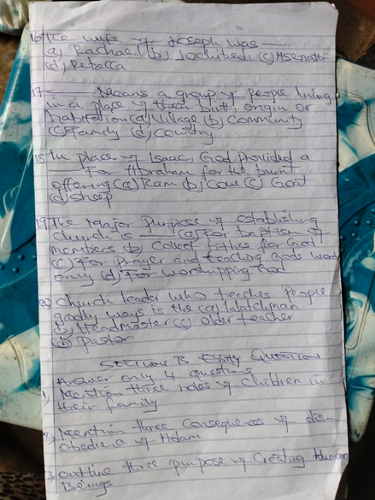 16 The wife of Joseph was
(a) Rachaal (b) Jochebed (c) Asenath
(d) Rebecca
17 Means a group of people living
in a place of their birth origin or
habitation (a) Village (b) Community
(c) Family (d) Country
18 In place of Isaac, God provided a
For Abraham for the burnt
offering (a) Ram (b) Cow (c) Goat
(d) sheep
19 The major purpose of establishing
church is (a) For baptism of
members (b) Collect tithes for God
(c) For Prayer and teaching Gods word
only (d) For worshipping God
20 Church leader who teaches people
godly ways is the (a) Watchman
(b) Headmaster (c) older teacher
(d) Pastor
Section B Essay Question
Answer only 4 questions
1, Mention three roles of Children in
their family
2, Mention three Consequences of dis-
obedience of Adam
3, outline three purpose of Creating Human
Beings